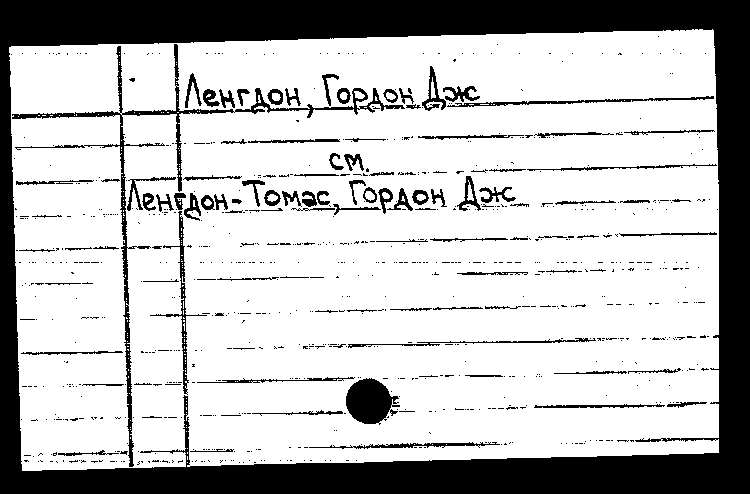 Ленгдон, Гордон Дж
см.
Ленгдон-Томас, Гордон Дж